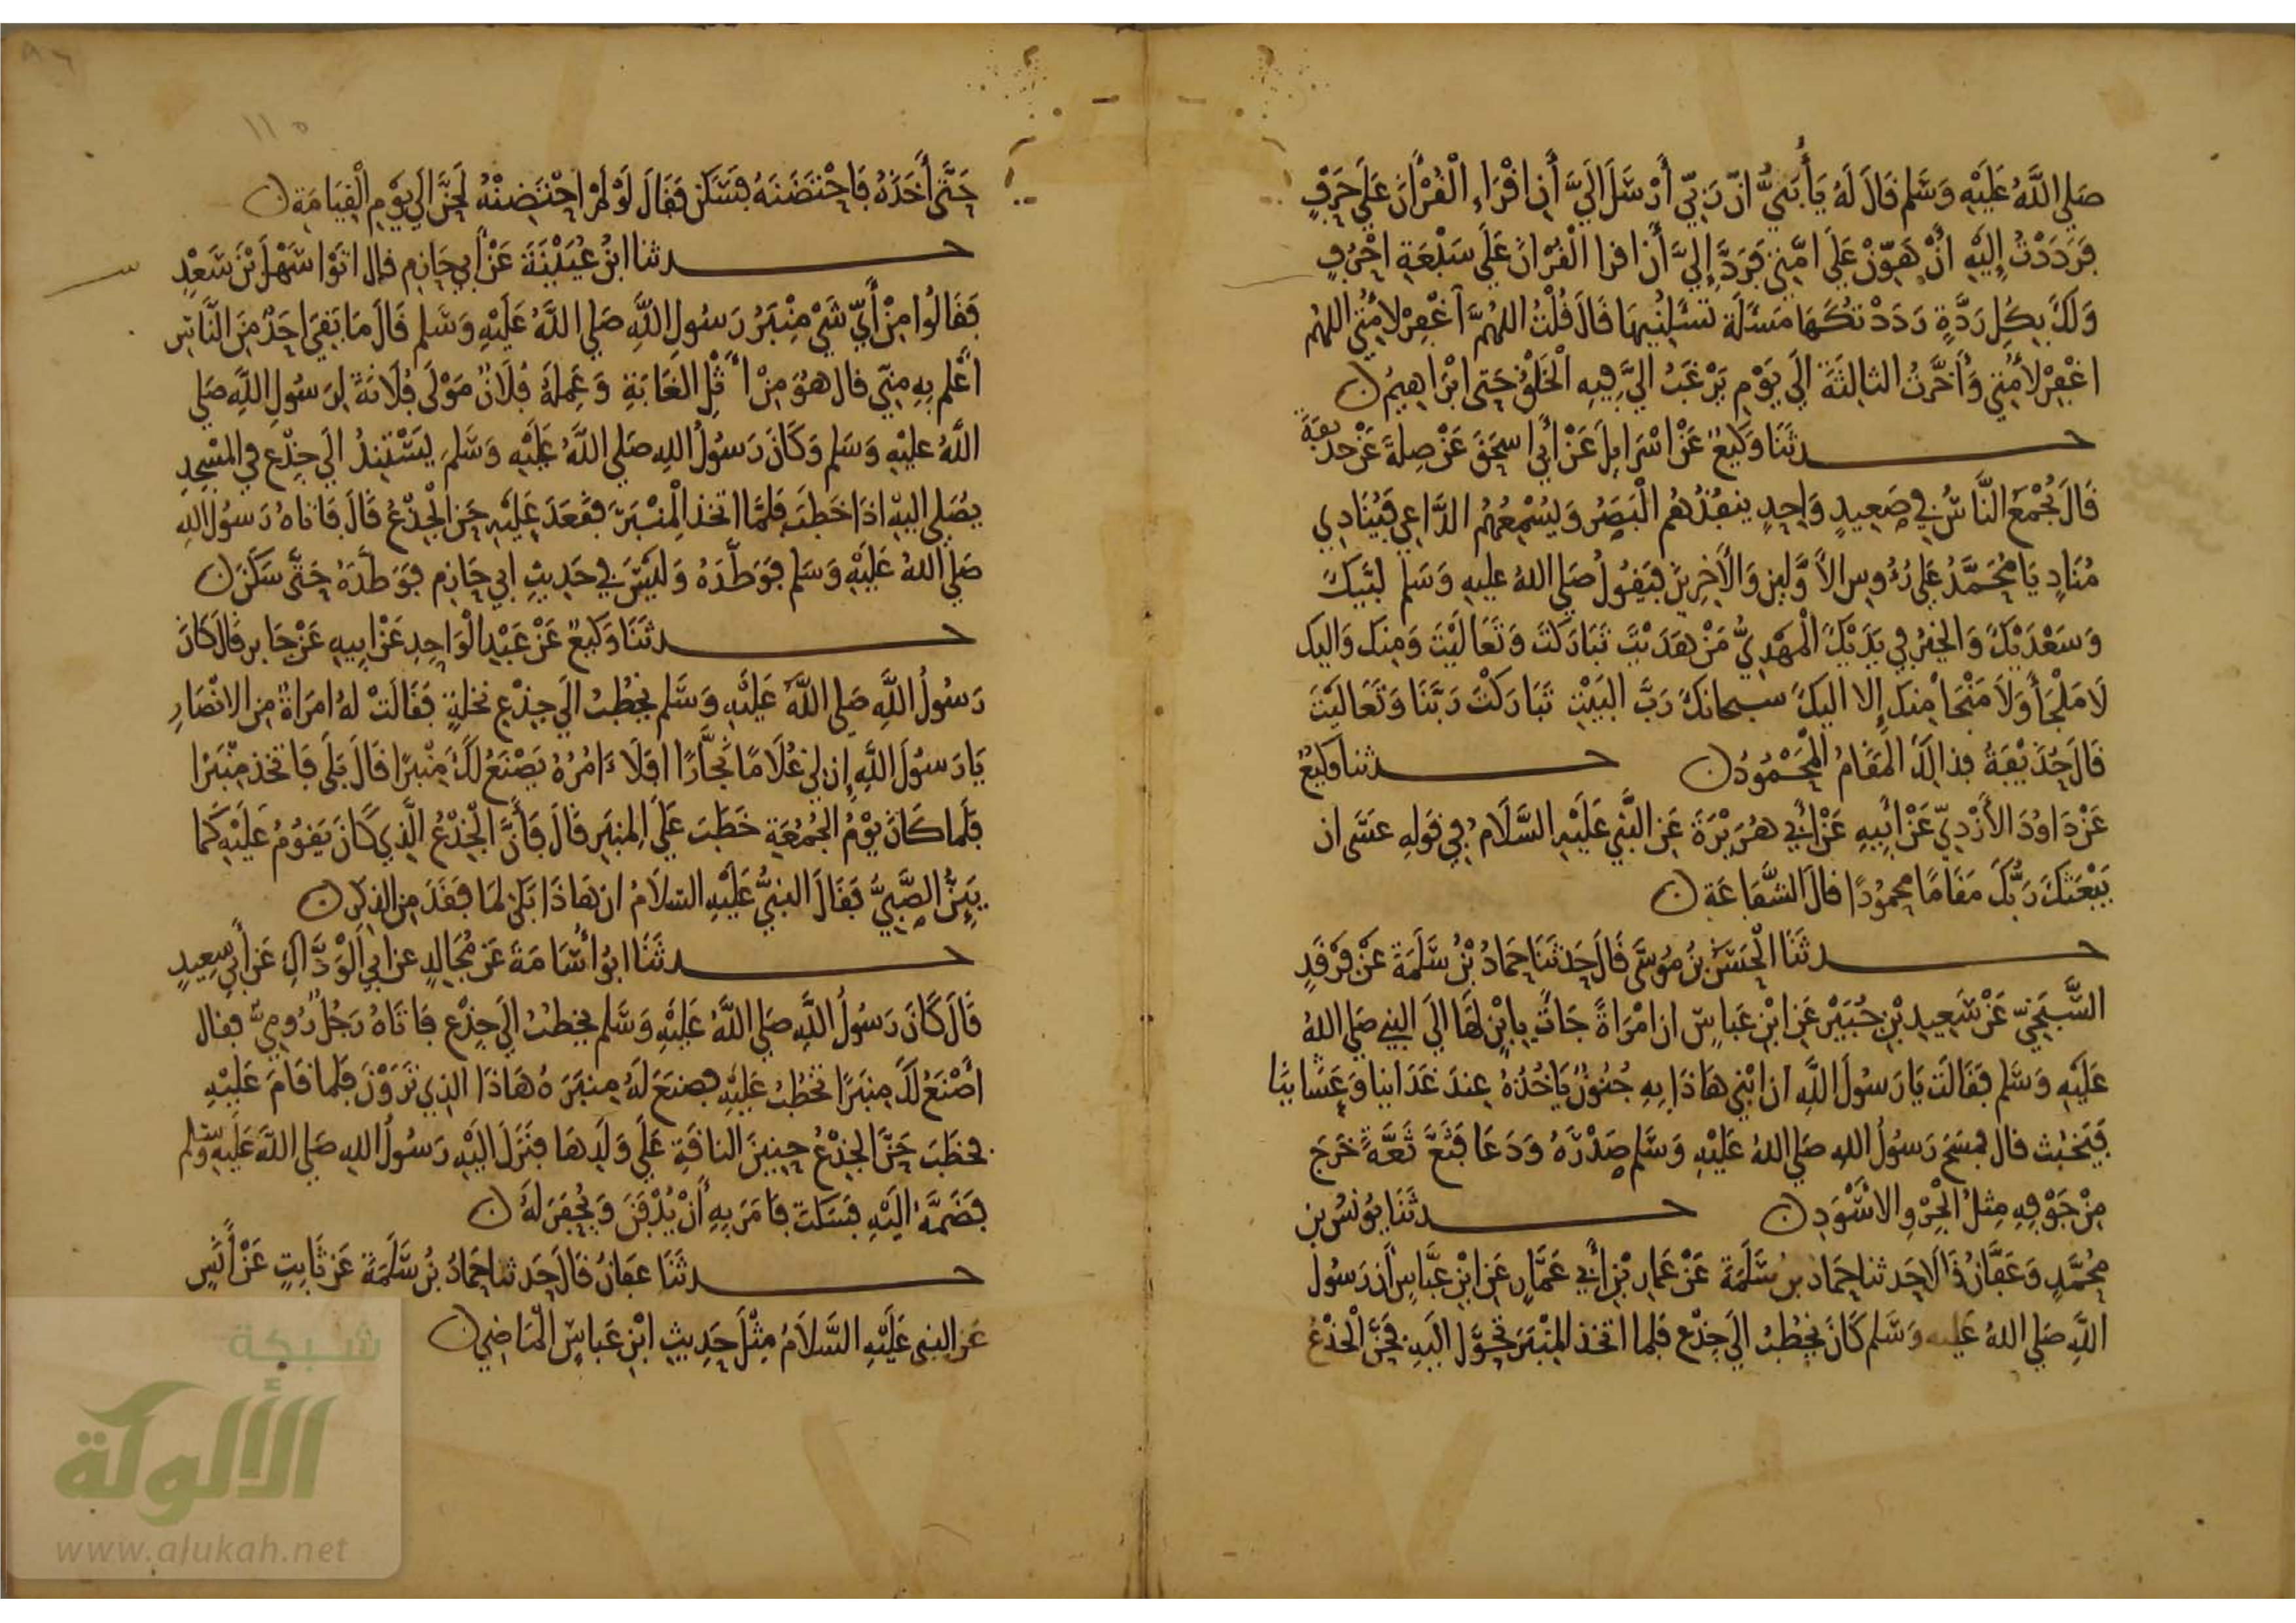 صلى الله عليه وسلم قال له يا أبي ان ربي أرسل الي أن اقراء القرآن على حرف
فرددت إليه أن هون على امتي فرد إلي أن اقرا القران على سبعة احرف
ولك بكل ردة رددتكها مسئلة تسئلنيها قال قلت اللهم آغفر لأمتي اللهم
اغفر لأمتي وأخرت الثالثة الى يوم يرغب الي فيه الخلق حتى ابراهيم
حدثنا وكيع عن اسرايل عن أبي اسحق عن صلة عن حذيفة
قال يجمع الناس في صعيد واحد ينفذهم البصر ويسمعهم الداعي فينادي
مناد يا محمد على رءوس الأولين والأخرين فيقول صلى الله عليه وسلم لبيك
وسعديك والخير في يديك المهدي من هديت تباركت وتعاليت ومنك واليك
لا ملجأ ولا منجا منك إلا اليك سبحانك رب البيت تباركت ربنا وتعاليت
قال حذيفة فذالك المقام المحمود حدثنا وكيع
عن داود الأزدي عن أبيه عن أبي هريرة عن النبي عليه السلام في قوله عسى ان
يبعثك ربك مقاما محمودا قال الشفاعة
حدثنا الحسن بن موسى قال حدثنا حماد بن سلمة عن فرقد
السبخي عن سعيد بن جبير عن ابن عباس ان امرأة جات بابن لها الى النبي صلى الله
عليه وسلم فقالت يا رسول الله ان ابني هاذا به جنون ياخذه عند غداينا وعشاينا
فيخبث قال فمسح رسول الله صلى الله عليه وسلم صدره ودعا فثع ثعة خرج
من جوفه مثل الجرو الاسود حدثنا يونس بن
محمد وعفان قالا حدثنا حماد بن سلمة عن عمار بن أبي عمار عن ابن عباس أن رسول
الله صلى الله عليه وسلم كان يخطب الى جذع فلما اتخذ المنبر تحول اليه فحن الجذع
١١٥
حتى أخذه فاحتضنه فسكن فقال لو لم احتضنه لحن الى يوم القيامة
حدثنا ابن عيينة عن أبي حازم قال اتوا سهل بن سعد
فقالوا من أي شي منبر رسول الله صلى الله عليه وسلم قال ما بقي احد من الناس
أعلم به مني قال هو من أثل الغابة وعمله فلان مولى فلانة لرسول الله صلى
الله عليه وسلم وكان رسول الله صلى الله عليه وسلم يستند الى جذع في المسجد
يصلي اليه اذا خطب فلما اتخذ المنبر فقعد عليه حن الجذع قال فاتاه رسول الله
صلى الله عليه وسلم فوطده وليس في حديث ابي حازم فوطده حتى سكن
حدثنا وكيع عن عبد الواحد عن ابيه عن جابر قال كان
رسول الله صلى الله عليه وسلم يخطب الى جذع نخلة فقالت له امراة من الانصار
يا رسول الله إن لي غلاما نجارا افلا ءامره يصنع لك منبرا قال بلى فاتخذ منبرا
فلما كان يوم الجمعة خطب على المنبر قال فأن الجذع الذي كان يقوم عليه كما
يئن الصبي فقال النبي عليه السلام ان هاذا بكى لما فقد من الذكر
حدثنا ابو أسامة عن مجالد عن ابي الوداك عن أبي سعيد
قال كان رسول الله صلى الله عليه وسلم يخطب الى جذع فاتاه رجل رومي فقال
أصنع لك منبرا تخطب عليه فصنع له منبره هاذا الذي ترون فلما قام عليه
فخطب حن الجذع حنين الناقة على ولدها فنزل اليه رسول الله صلى الله عليه وسلم
فضمه اليه فسكت فامر به أن يدفن ويحفر له
حدثنا عفان قال حدثنا حماد بن سلمة عن ثابت عن أنس
عن النبي عليه السلام مثل حديث ابن عباس الماضي
شبكة
الألوكة
www.alukah.net